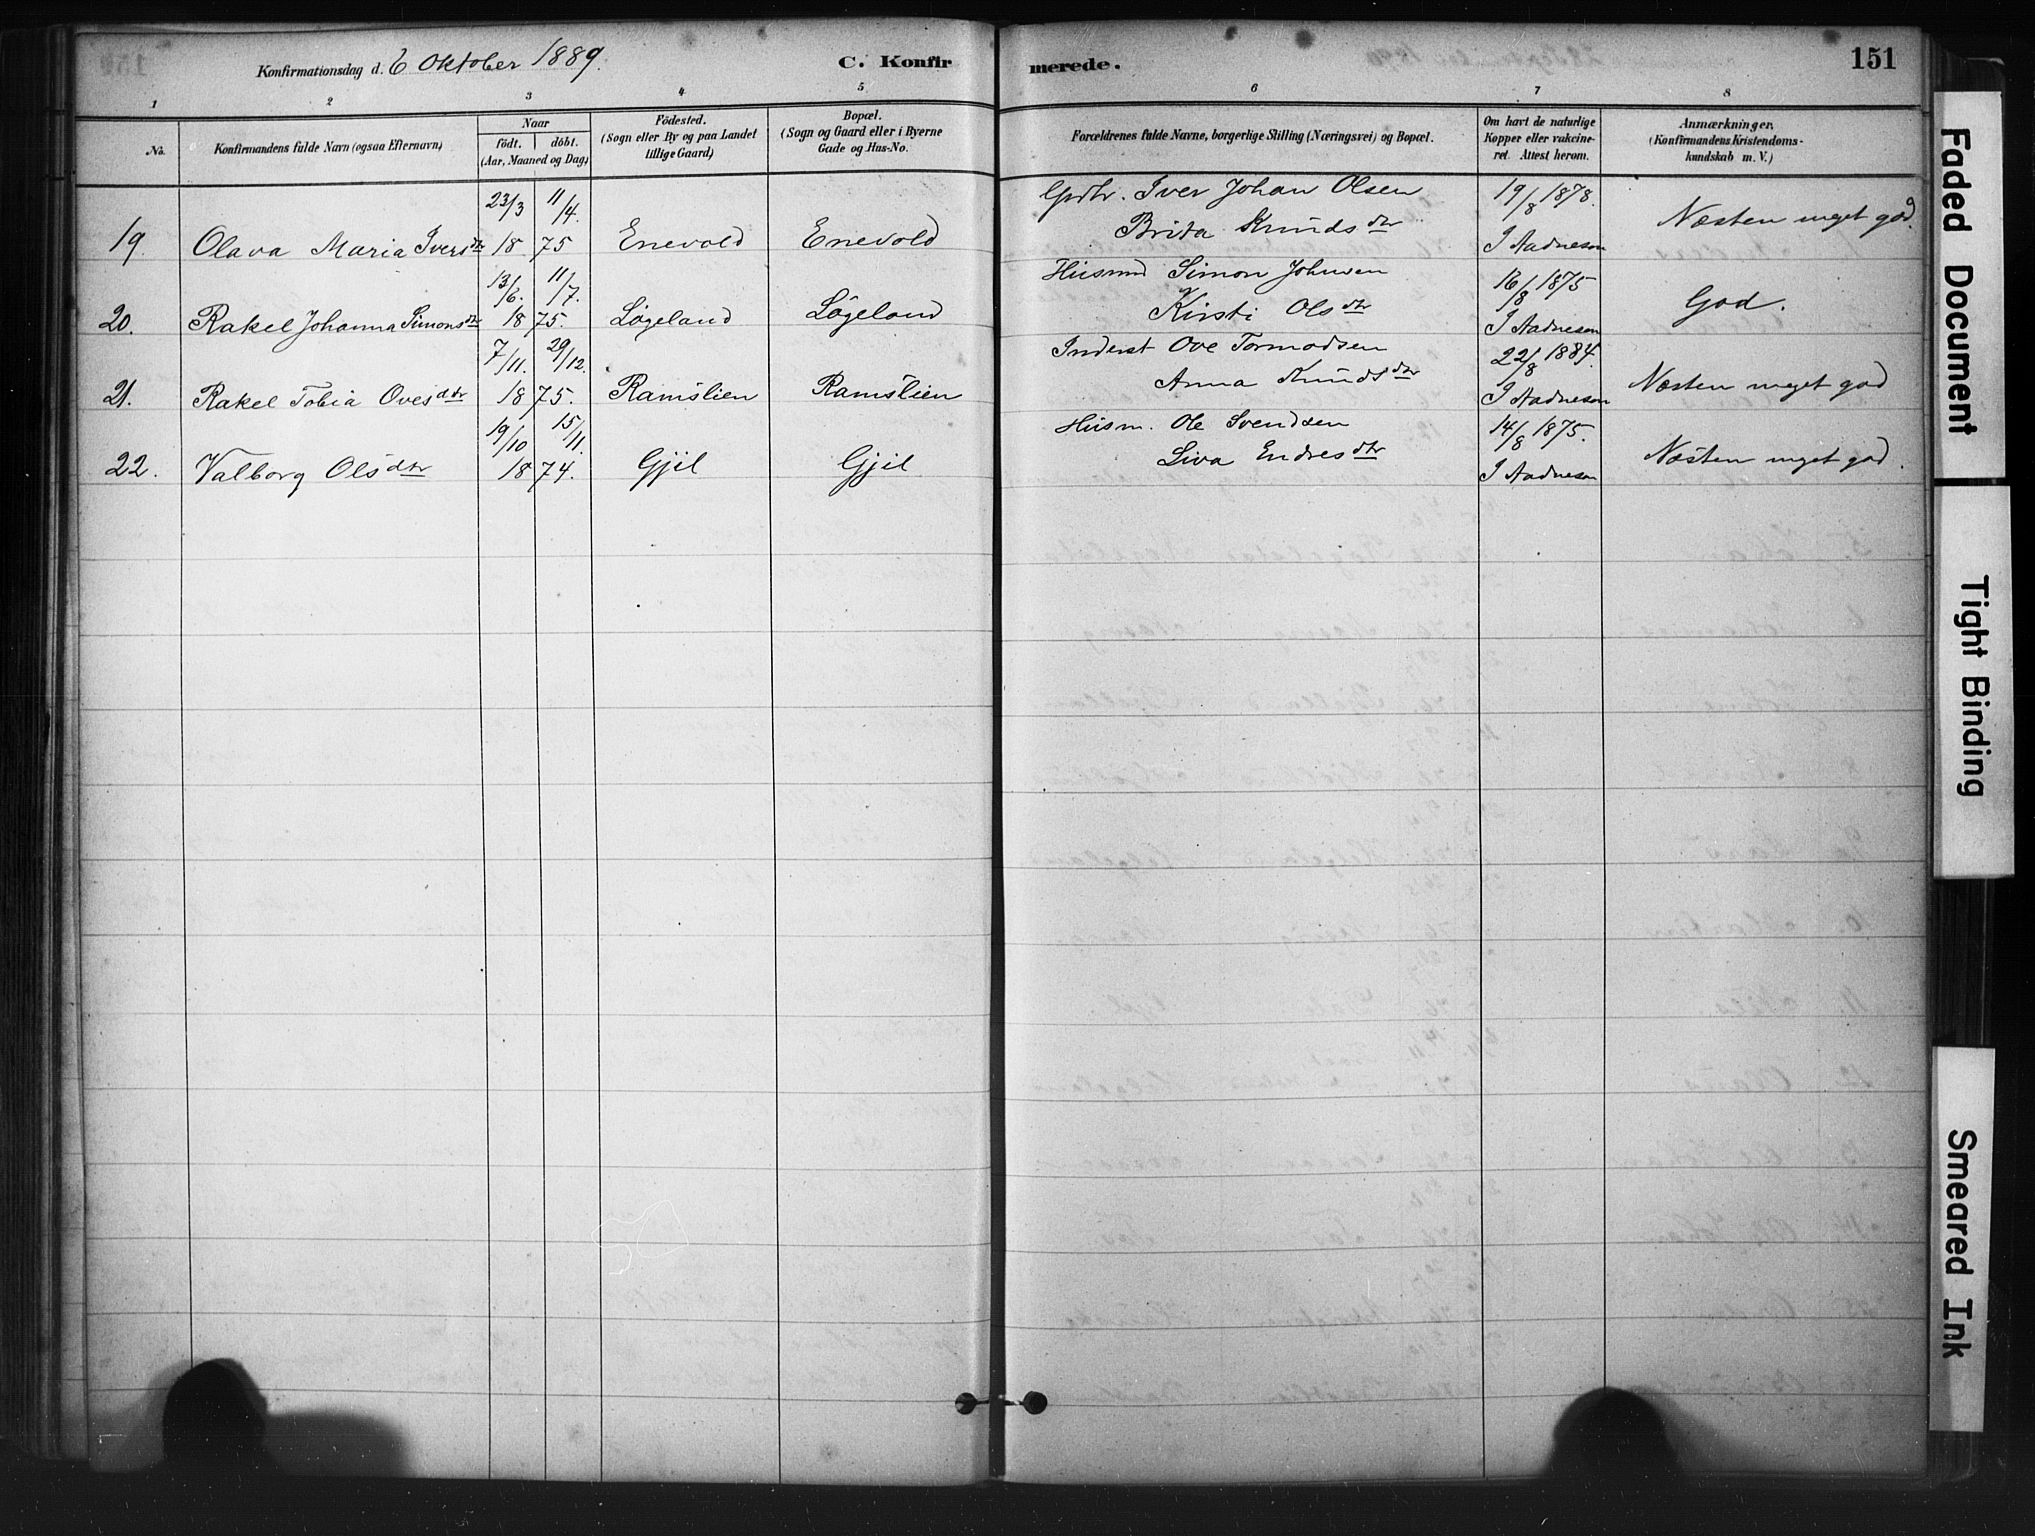 Konfirmationsdag d. 6 Oktober 1889.
C. Konfirmerede.
151
1 2 3 4 5 6 7 8
No.
Konfirmandens fulde Navn (ogsaa Efternavn)
Naar
födt. döbt.
(Aar, Maaned og Dag)
Födested.
(Sogn eller By og paa Landet
tillige Gaard)
Bopæl.
(Sogn og Gaard eller i Byerne
Gade og Hus-No.
Forældrenes fulde Navne, borgerlige Stilling (Næringsvei) og Bopæl.
Om havt de naturlige
Kopper eller vakcine-
ret. Attest herom.
Anmærkninger.
(Konfirmandens Kristendoms-
kundskab m. V.)
23/3 11/4. Gdbr. Iver Johan Olsen 19/8 1878.
19. Olava Maria Iversdtr 18 75 Enevold Enevold Brita Knudsdtr I Aadneson Næsten meget god.
13/6. 11/7. Husmd Simon Johnsen 16/8 1875
20. Rakel Johanna Simonsdtr 18 75. Løgeland Løgeland Kirsti Olsdtr I Aadneson God.
7/11. 29/12. Inderst Ove Tormodsen 22/8 1884.
21. Rakel Tobia Ovesdtr 18 75. Ramslien Ramslien Anna Knudsdtr I Aadneson Næsten meget god
19/10 15/11. Husm. Ole Svendsen 14/8 1875.
22. Valborg Olsdtr 18 74. Gjil Gjil Siva Endresdtr I Aadneson Næsten meget god.
Faded Document
Tight Binding
Smeared Ink